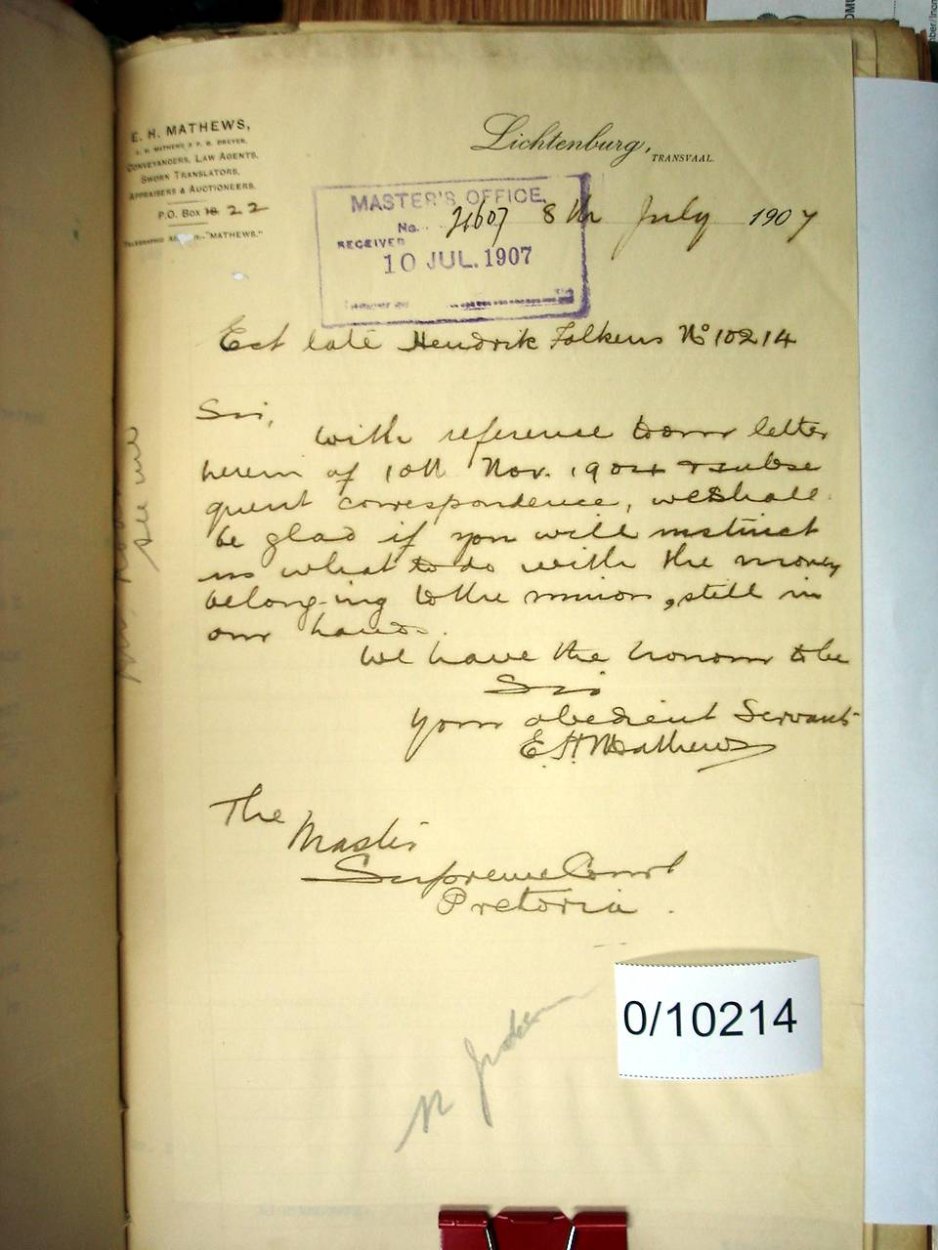 E. H. MATHEWS,
CONVEYANCERS, LAW AGENTS,
SWORN TRANSLATORS,
APPRAISERS & AUCTIONEERS.
P.O. Box 18. 22
"MATHEWS."
Lichtenburg,
TRANSVAAL.
8th July 1907
MASTER'S OFFICE.
No. 21607
RECEIVED
10 JUL. 1907
Est late Hendrik Folkens No 10214
Sir,
With reference to our letter
herein of 10th Nov. 1904 & subse
quent correspondence, we shall
be glad if you will instruct
us what to do with the money
belong-ing to the minor, still in
our hands.
We have the honour to be
Sir
Your obedient Servant
E. H. Mathews
The
Master
Supreme Court
Pretoria.
see me
0/10214